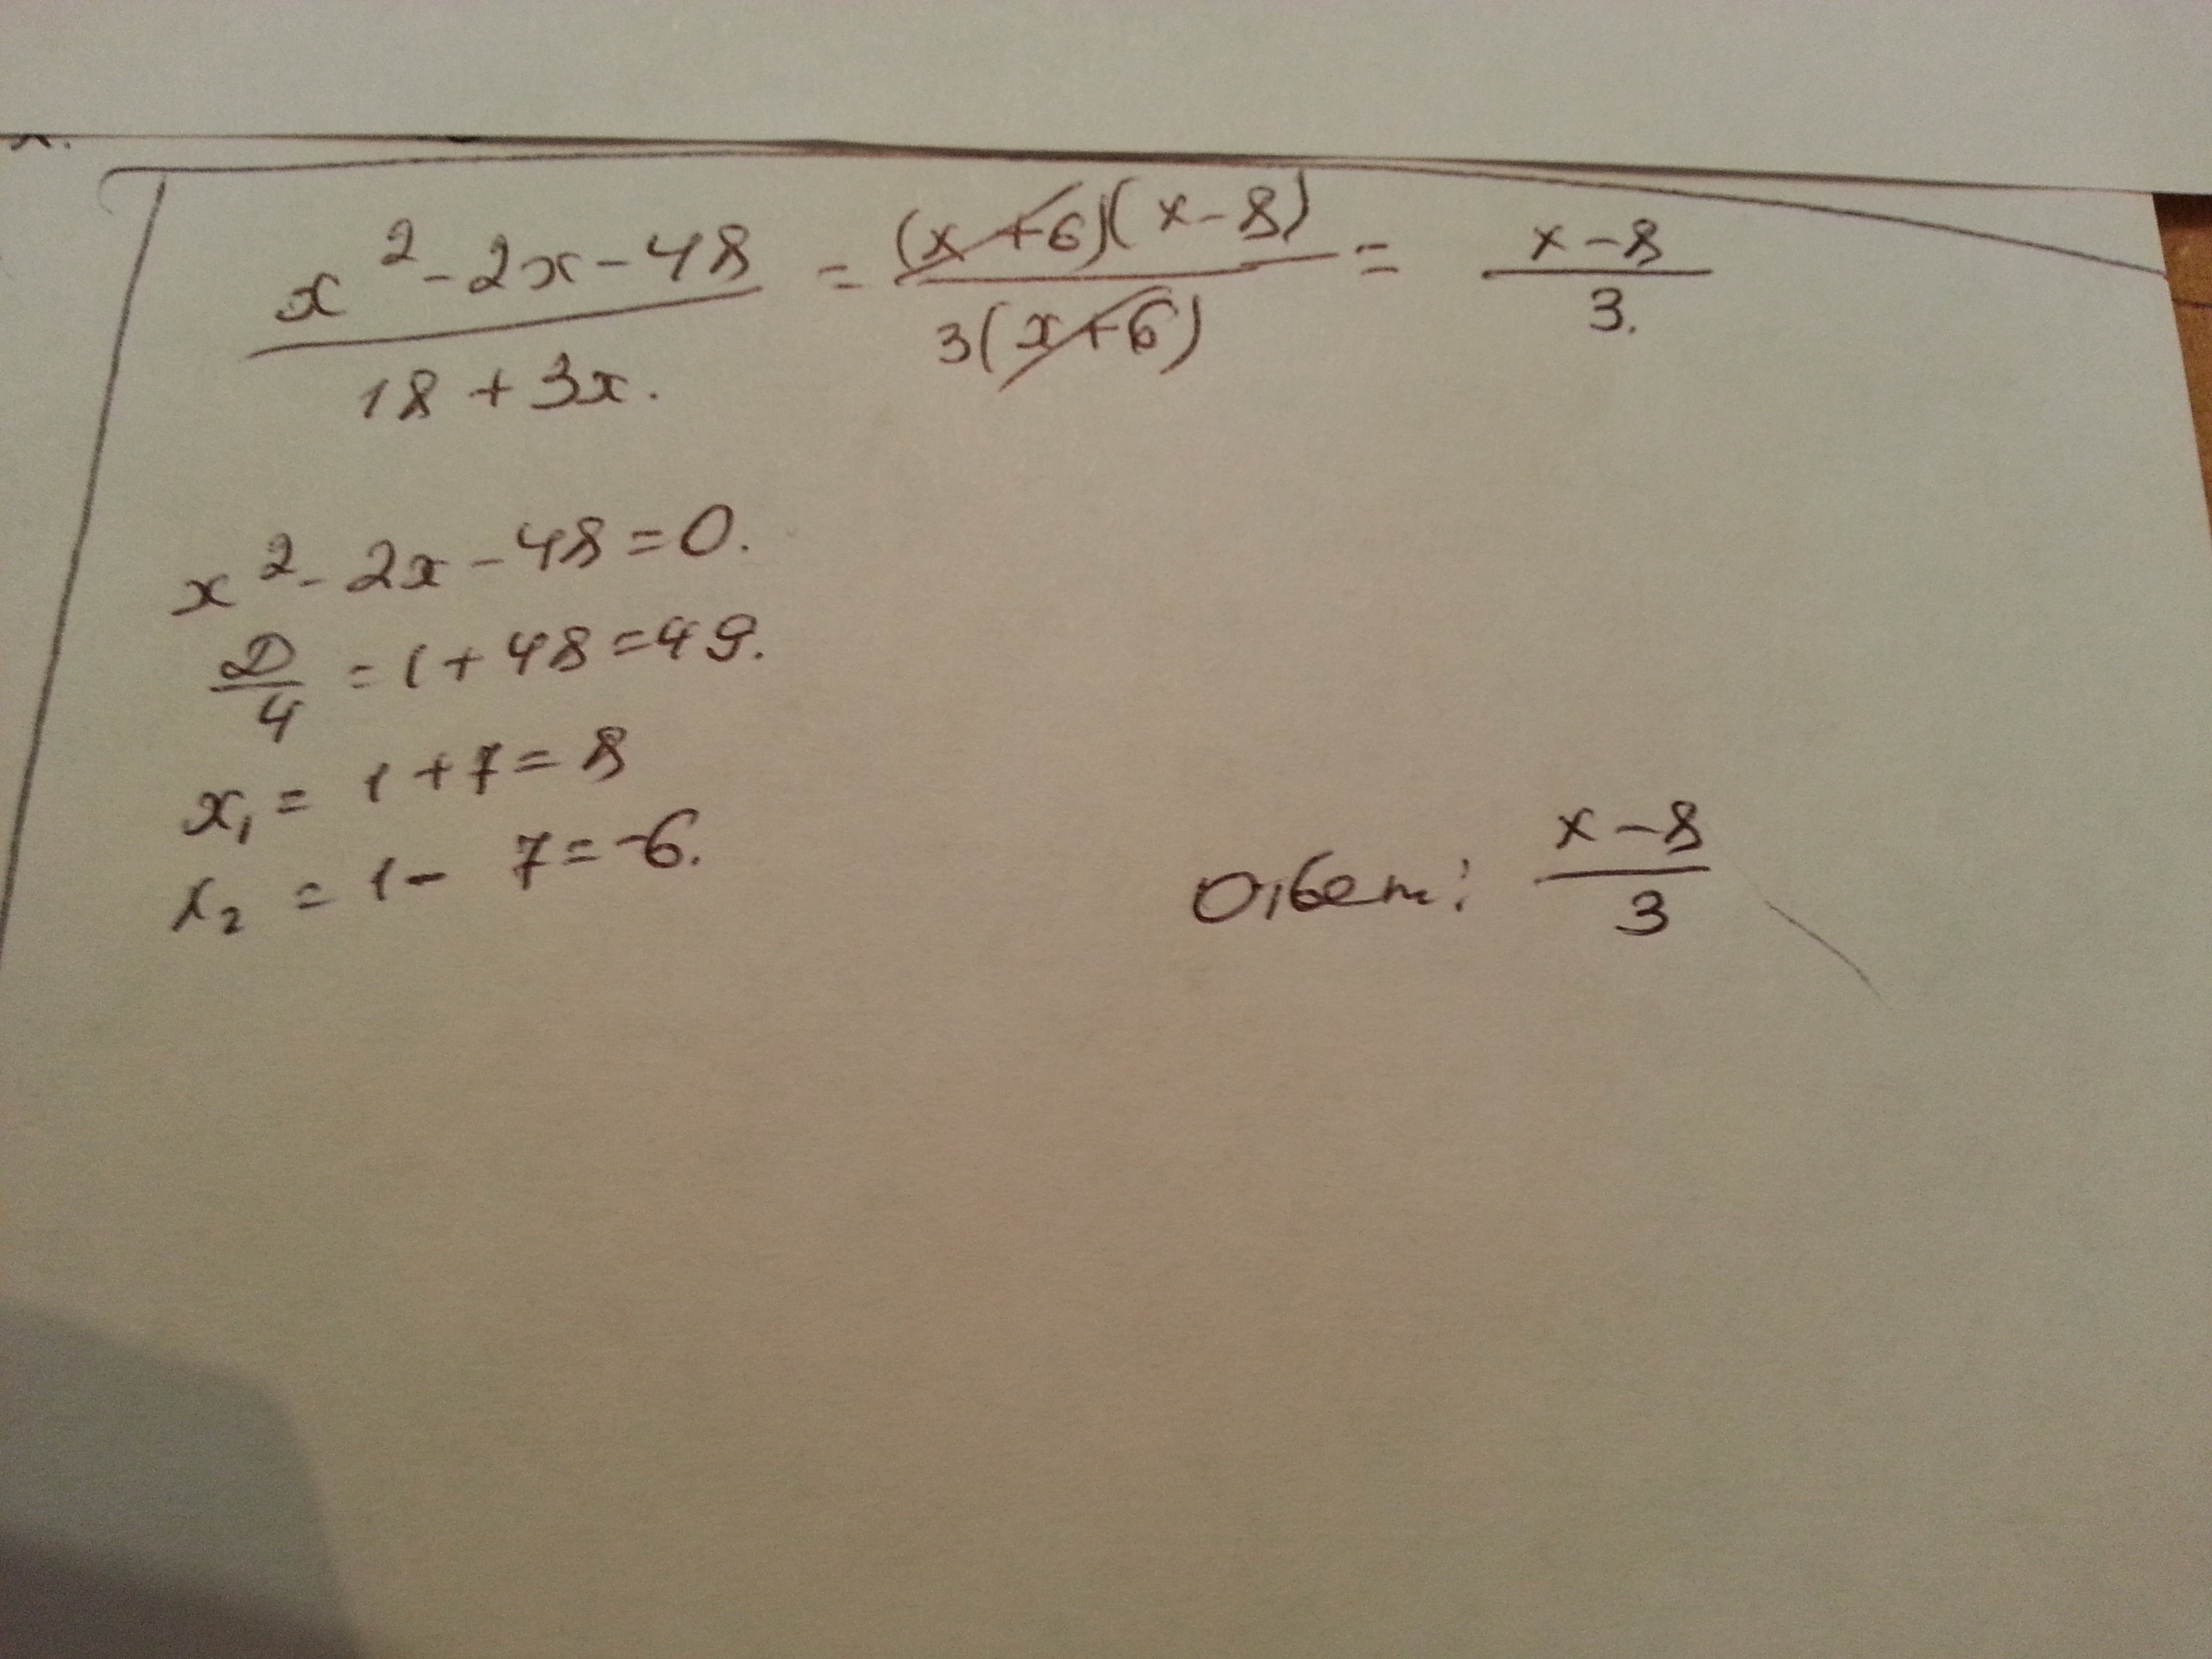 x² - 2x - 48 / 18 + 3x. = (x+6)(x-8) / 3(x+6) = x-8 / 3.
x² - 2x - 48 = 0.
D/4 = 1 + 48 = 49.
x₁ = 1 + 7 = 8
x₂ = 1 - 7 = -6.
Ответ: x-8 / 3